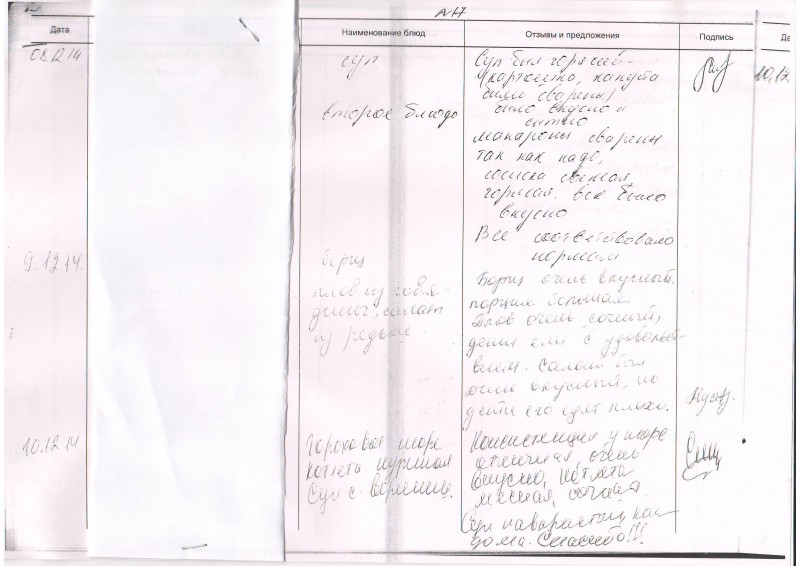 Дата
Наименование блюд
Отзывы и предложения
Подпись
08.12.14
суп
Суп был горячий
(картошка, капуста
были сварены)
второе блюдо
было вкусно и
сытно
макароны сварены
так как надо,
сосиска свежая,
горячая. все было
вкусно
Все соответствовало
нормам
9.12.14.
борщ
плов из говя-
дины, салат
из редьки
Борщ очень вкусный,
порция большая.
Плов очень сочный,
дети ели с удовольст-
вием. Салат был
очень вкусный, но
дети его едят плохо.
10.12.14
Гороховое пюре
Котлета куриная
Суп с вермишел.
Консистенция у пюре
отличная, очень
вкусно, котлета
мясная, сочная.
Суп наваристый, как
дома. Спасибо!!!
10.12